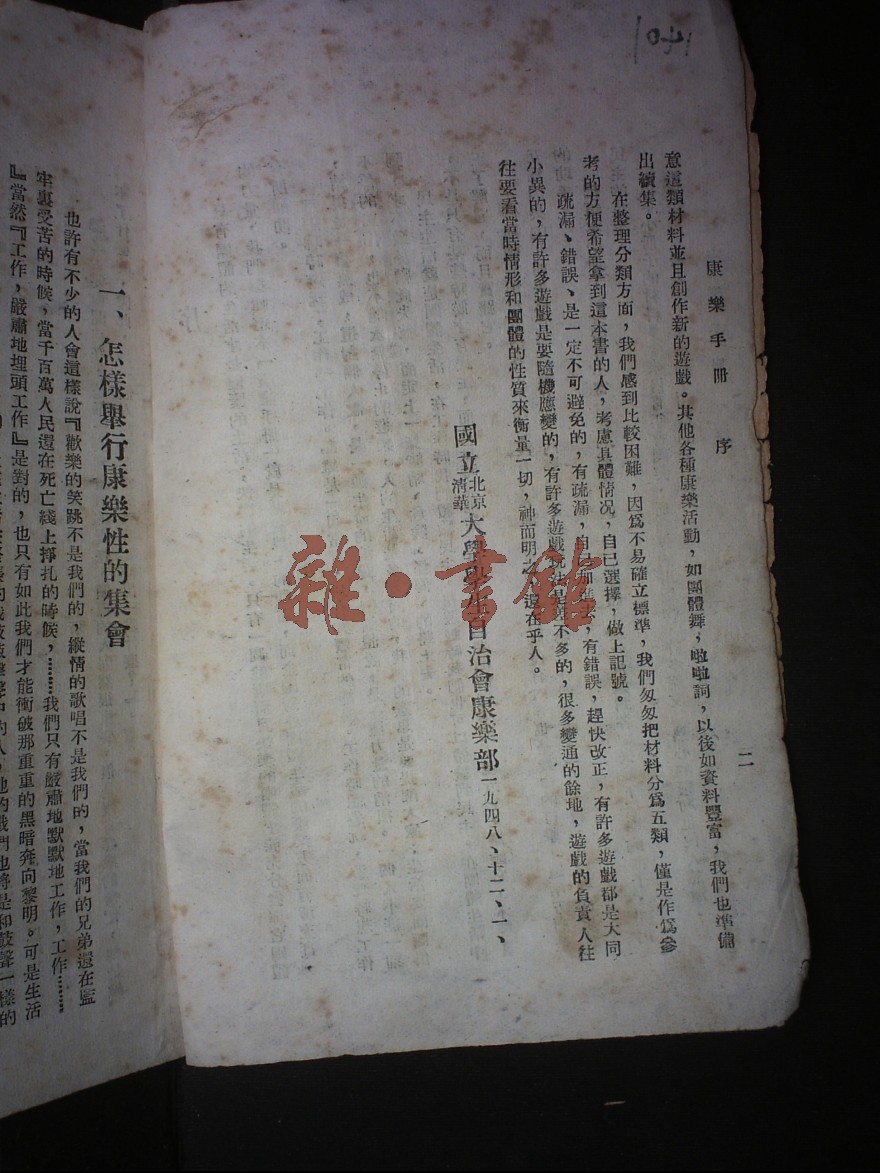 康樂手冊 序 二
意這類材料並且創作新的遊戲。其他各種康樂活動，如團體舞，啦啦詞，以後如資料豐富，我們也準備
出續集。
在整理分類方面，我們感到比較困難，因爲不易確立標準，我們匆匆把材料分爲五類，僅是作爲參
考的方便希望拿到這本書的人，考慮具體情况，自己選擇，做上記號。
疏漏、錯誤、是一定不可避免的，有疏漏，自己加進去，有錯誤，趕快改正，有許多遊戲都是大同
小異的，有許多遊戲是要隨機應變的，有許多遊戲玩法是差不多的，很多變通的餘地，遊戲的負責人往
往要看當時情形和團體的性質來衡量一切，神而明之，還在乎人。
國立北京清華大學學生自治會康樂部 一九四八、十二、一、
一、怎樣舉行康樂性的集會
也許有不少的人會這樣說『歡樂的笑跳不是我們的，縱情的歌唱不是我們的，當我們的兄弟還在監
牢裏受苦的時候，當千百萬人民還在死亡綫上掙扎的時候，………我們只有嚴肅地默默地工作，工作………
『當然『工作，嚴肅地埋頭工作』是對的，也只有如此我們才能衝破那重重的黑暗奔向黎明。可是生活
他的戰鬥也將是和鼓聲一樣的
雜·書館